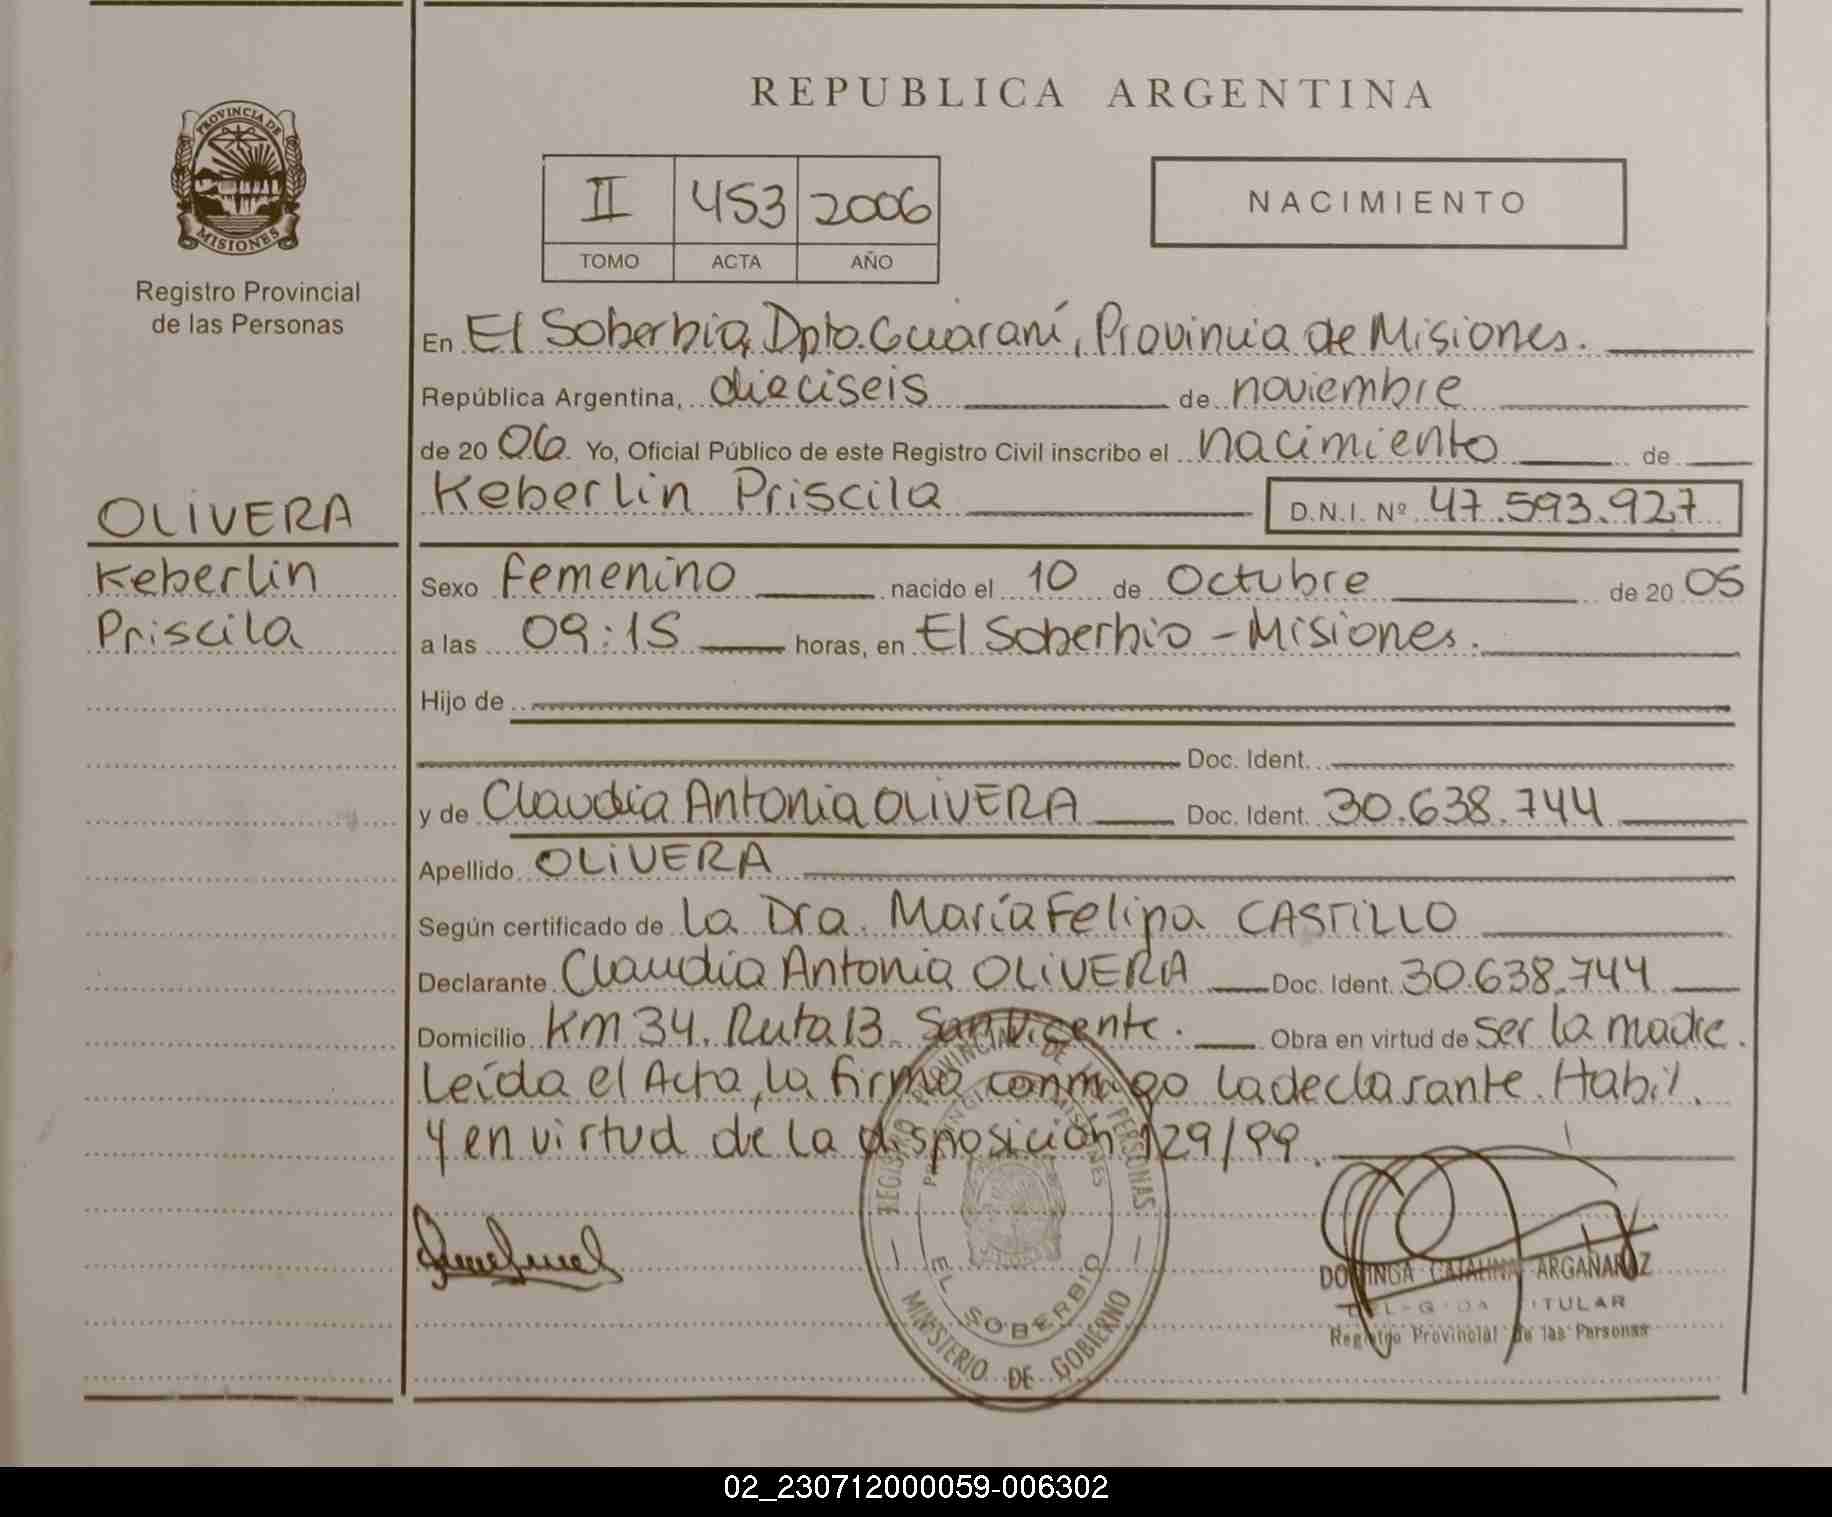 REPUBLICA ARGENTINA
PROVINCIA DE
MISIONES
Registro Provincial
de las Personas
II 453 2006
TOMO ACTA AÑO
NACIMIENTO
En El Soberbio, Dpto. Guaraní, Provincia de Misiones.
República Argentina, dieciseis de noviembre
de 20 06. Yo, Oficial Público de este Registro Civil inscribo el nacimiento de
Keberlin Priscila D.N.I. Nº 47.593.927
OLIVERA
Keberlin
Priscila
Sexo Femenino nacido el 10 de Octubre de 20 05
a las 09:15 horas, en El Soberbio - Misiones.
Hijo de
Doc. Ident.
y de Claudia Antonia OLIVERA Doc. Ident. 30.638.744
Apellido OLIVERA
Según certificado de La Dra. María Felipa CASTILLO
Declarante Claudia Antonia OLIVERA Doc. Ident. 30.638.744
Domicilio Km 34. Ruta 13. San Vicente. Obra en virtud de ser la madre.
Leída el Acta, la firma conmigo la declarante. Habil.
Y en virtud de la disposición 129/99.
REGISTRO PROVINCIAL DE LAS PERSONAS
PROVINCIA DE MISIONES
EL SOBERBIO
MINISTERIO DE GOBIERNO
DOMINGA CATALINA ARGAÑARAZ
DELEGADA TITULAR
Registro Provincial de las Personas
02_230712000059-006302